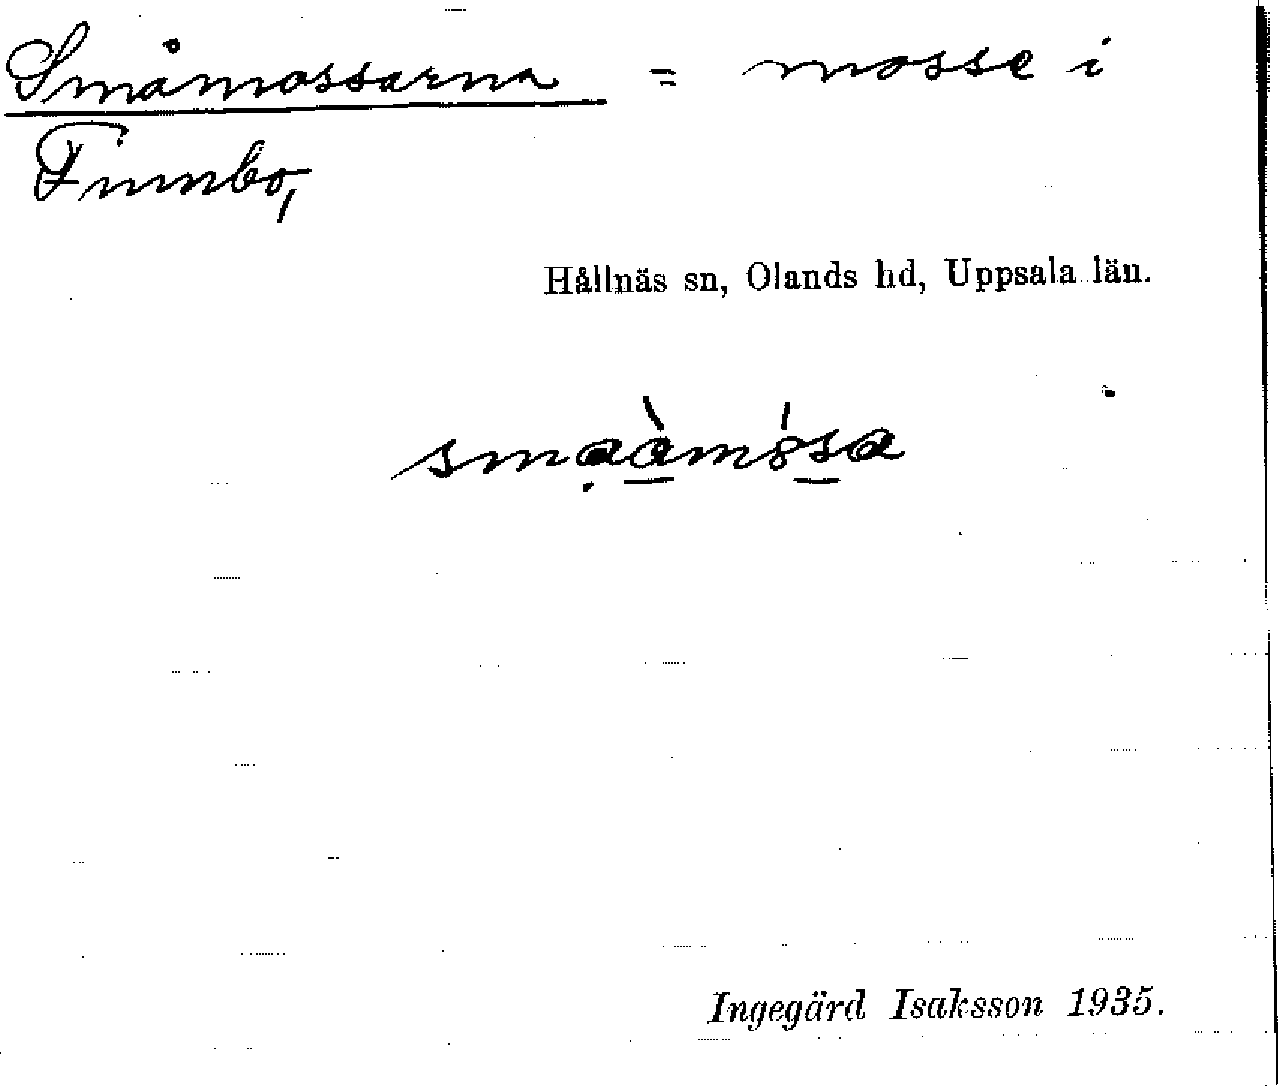 Småmossarna = mosse i
Finnbo,
Hållnäs sn, Olands hd, Uppsala län.
smaàmòsa
Ingegärd Isaksson 1935.